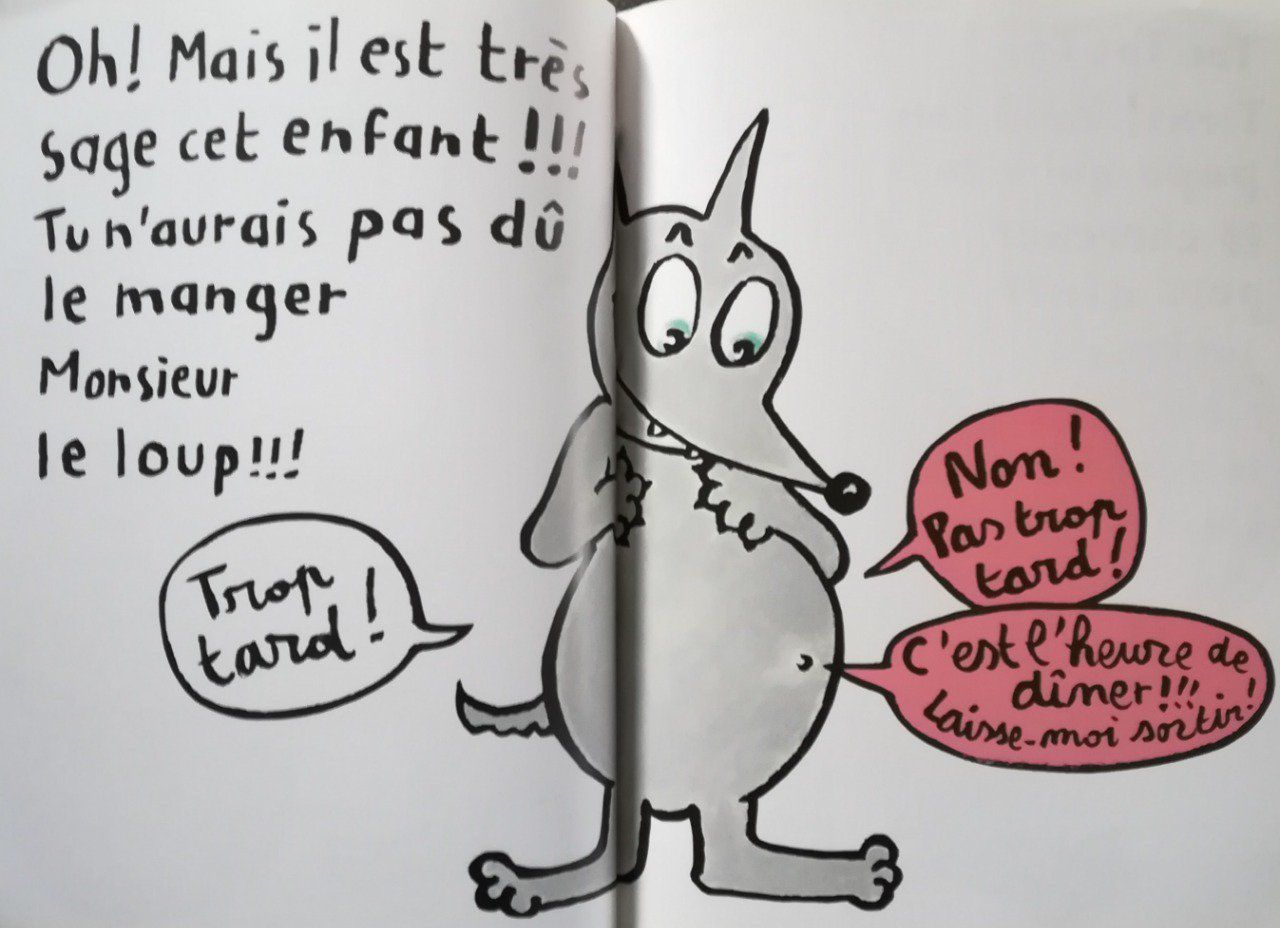 Oh! Mais il est très
sage cet enfant!!!
Tu n'aurais pas dû
le manger
Monsieur
le loup!!!
Trop
tard!
Non!
Pas trop
tard!
C'est l'heure de
dîner!!!
Laisse-moi sortir!